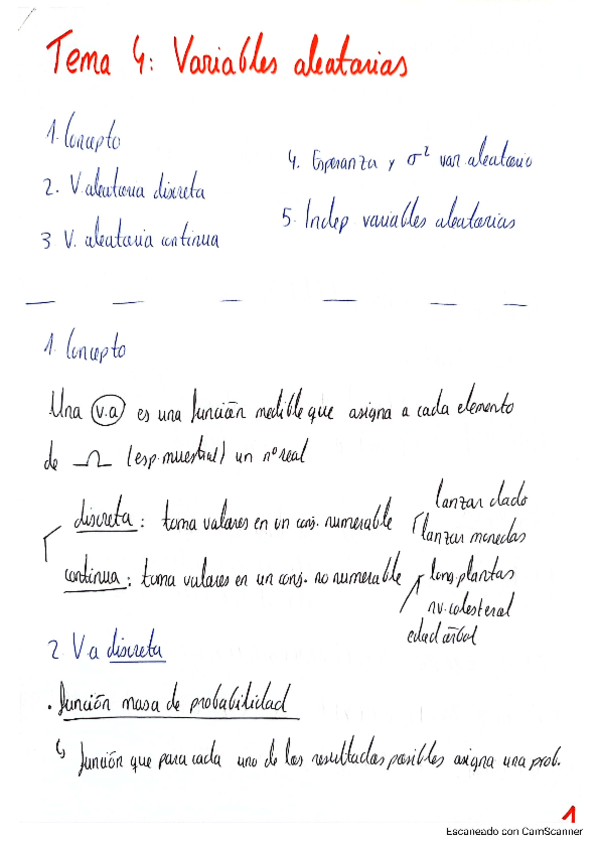 Tema 4: Variables aleatorias
1. Concepto
2. V. aleatoria discreta
3 V. aleatoria continua
4. Esperanza y σ² var. aleatorio
5. Indep variables aleatorias
1. Concepto
Una v.a es una función medible que asigna a cada elemento
de Ω (esp. muestral) un nº real
discreta: toma valores en un conj. numerable
lanzar dado
lanzar monedas
continua: toma valores en un conj. no numerable
long. plantas
nv. colesterol
edad árbol
2. V.a discreta
• Función masa de probabilidad
↳ función que para cada uno de los resultados posibles asigna una prob.
1
Escaneado con CamScanner